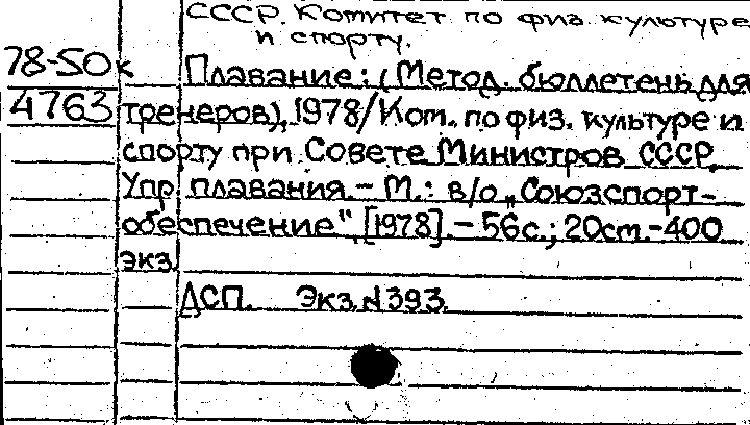 СССР. Комитет по физ. культуре
и спорту.
78-50к
4763
Плавание: (Метод. бюллетень для
тренеров), 1978/Ком. по физ. культуре и
спорту при Совете Министров СССР.
Упр. плавания. - М.: в/о „Союзспорт-
обеспечение", [1978]. - 56с.; 20см. - 400
экз.
ДСП. Экз. №393.